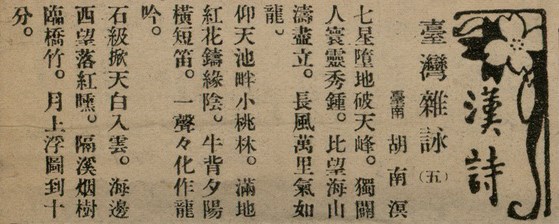 漢詩
臺灣雜詠(五)
臺南 胡南溟
七星墮地破天峰。獨闢
人寰靈秀鍾。比望海山
濤盡立。長風萬里氣如
龍。
仰天池畔小桃林。滿地
紅花鑄緣陰。牛背夕陽
橫短笛。一聲々化作龍
吟。
石級掀天白入雲。海邊
西望落紅曛。隔溪烟樹
臨橋竹。月上浮圖到十
分。